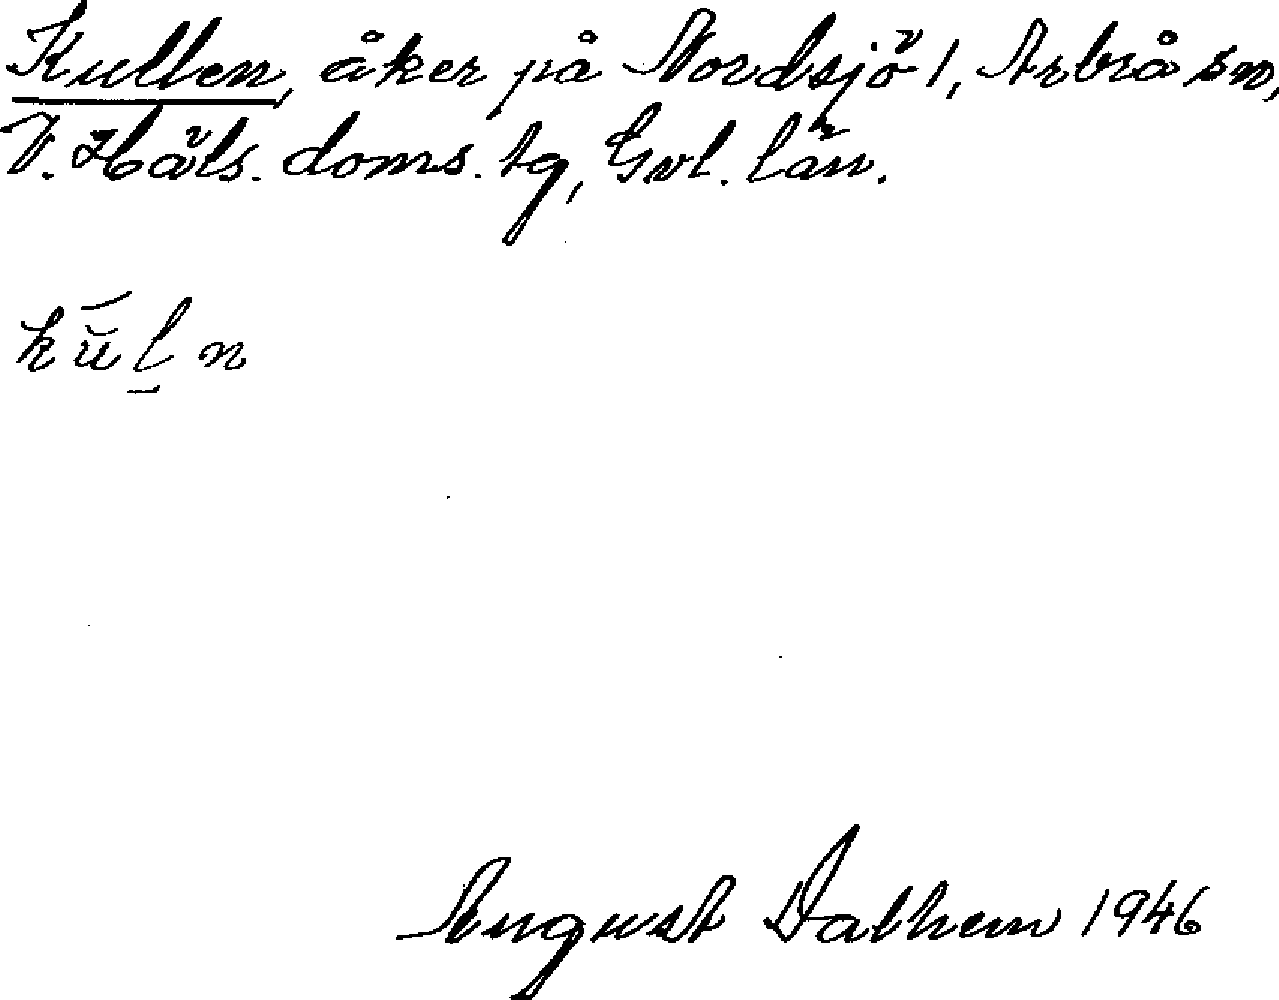 Kullen, åker på Nordsjö 1, Arbrå sn,
V. Häls. doms. tg, Gvl. län.
kŭ́l̠n
August Dalhem 1946